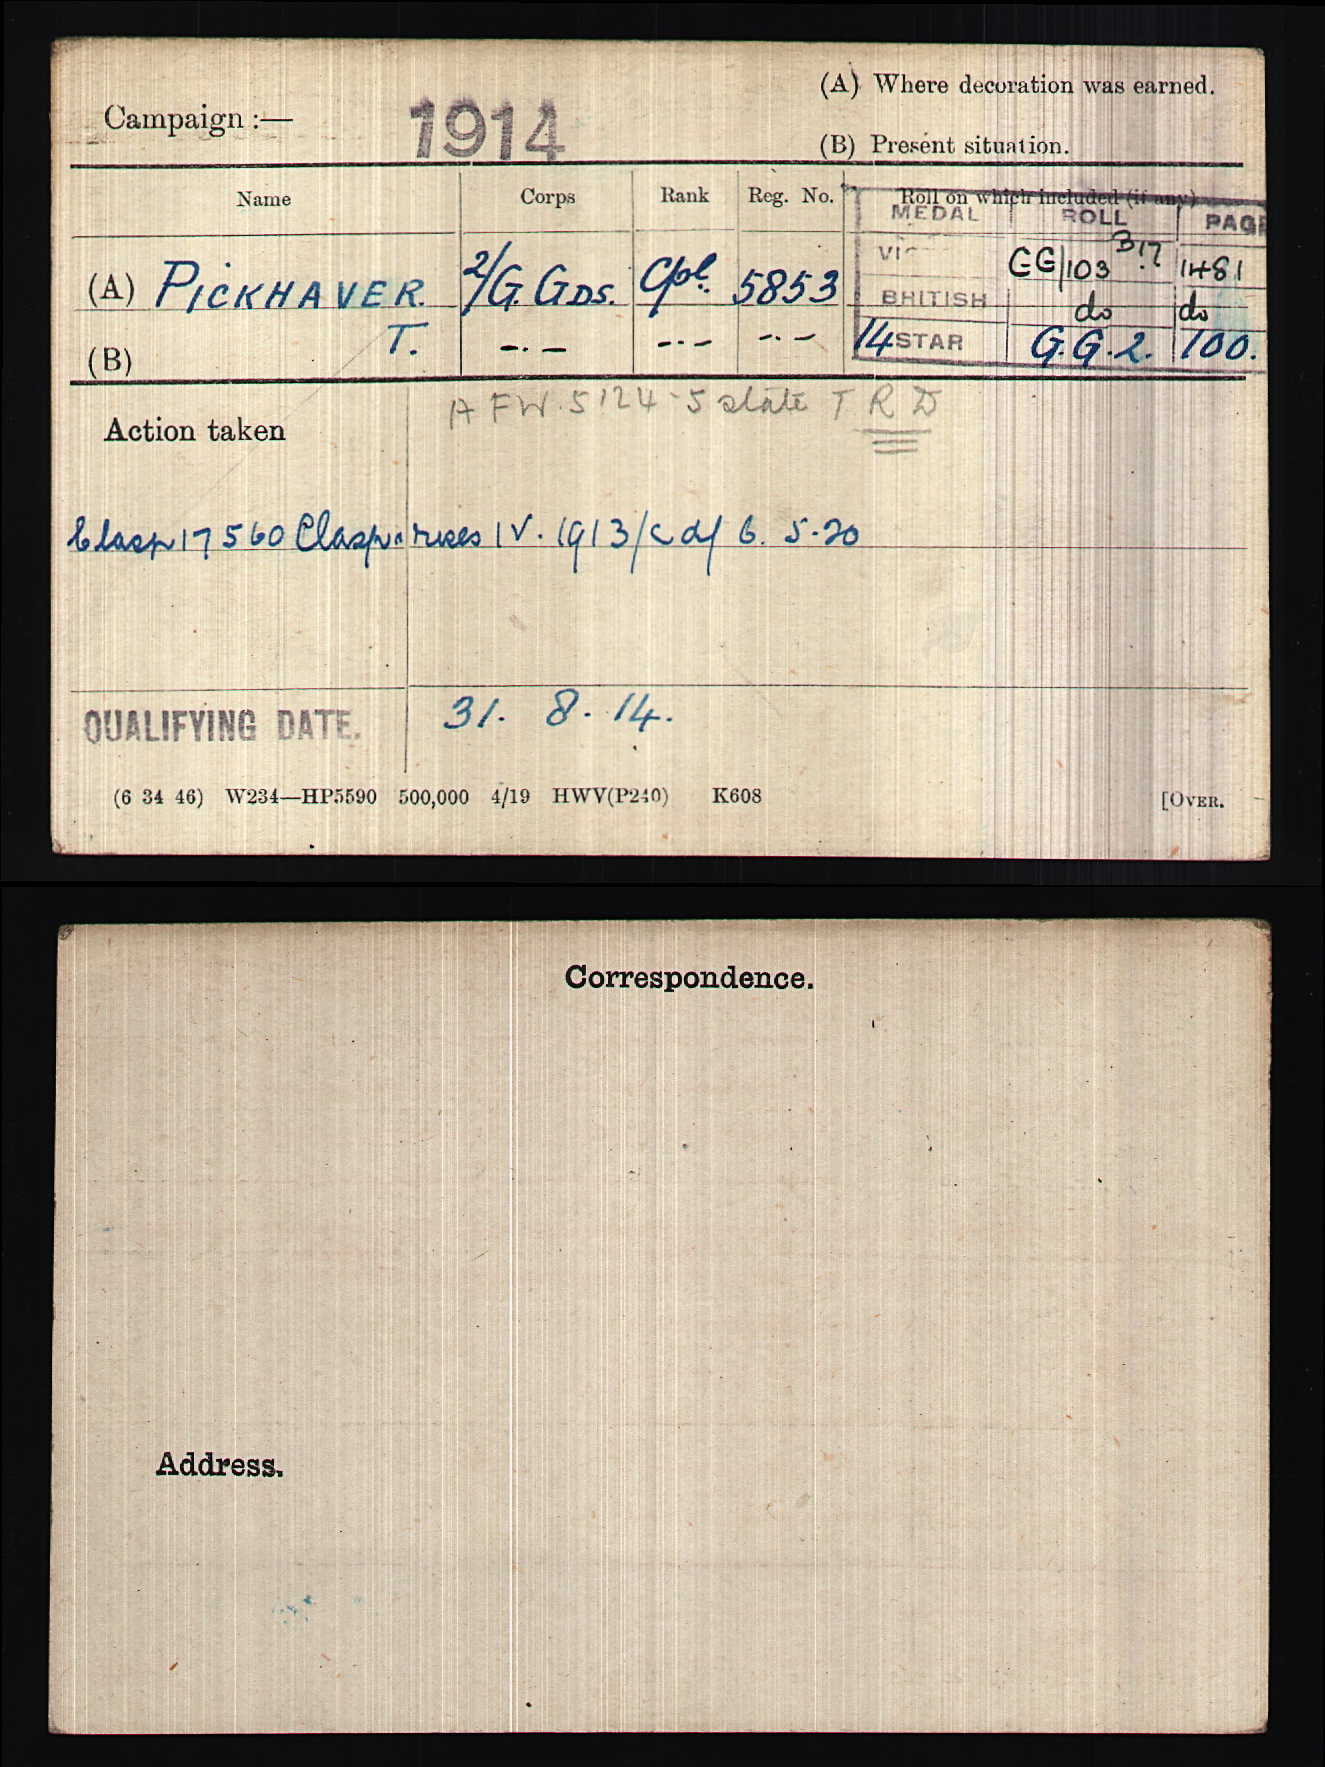 Campaign :— 1914
(A) Where decoration was earned.
(B) Present situation.
Name Corps Rank Reg. No. Roll on which included (if any)
MEDAL ROLL PAGE
(A) PICKHAVER. 2/G. GDS. Cpl. 5853
GG/103 B17 1481
BRITISH do do
(B) T. —·— —·— —·— 14 STAR G.G.2. 100.
AFW. 5124-5 state T R D
Action taken
Clasp 17560 Clasp & roses IV. 1913/ 6. 5.20
QUALIFYING DATE. 31. 8. 14.
(6 34 46) W234—HP5590 500,000 4/19 HWV(P240) K608 [OVER.
Correspondence.
Address.